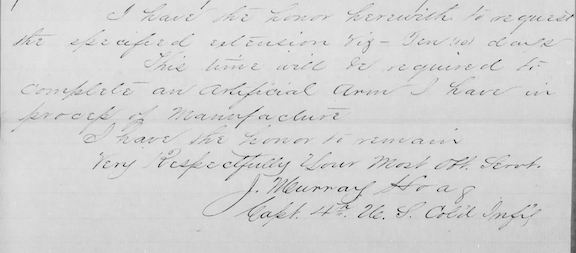 I have the honor herewith to request
the specified extension viz - Ten (10) days
This time will be required to
complete an Artificial Arm I have in
process of Manufacture
I have the honor to remain
Very Respectfully Your Most Obt. Servt.
J. Murray Hoag
Capt. 4th U. S. Cold Inf'y